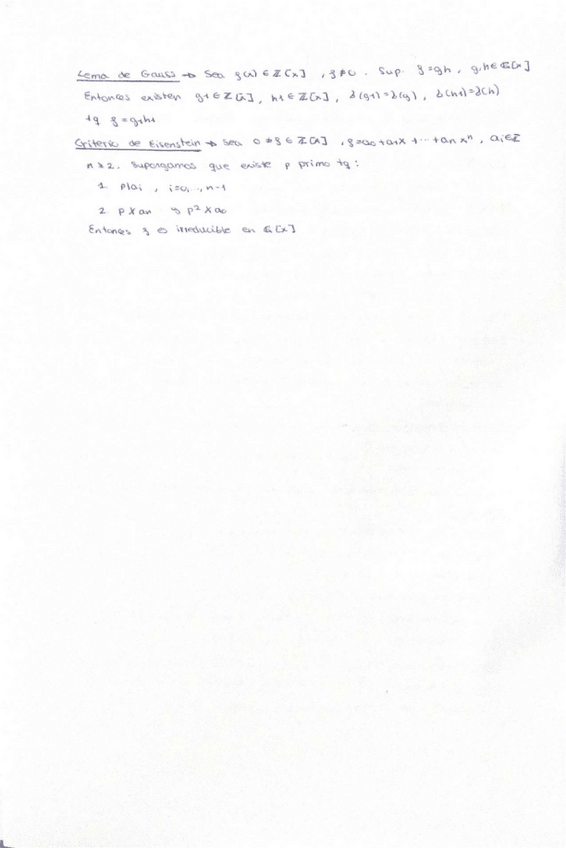 Lema de Gauss → Sea f(x) ∈ ℤ[x] , f≠0 . Sup. f=gh , g,h∈ℚ[x]
Entonces existen g1 ∈ ℤ[x] , h1 ∈ ℤ[x] , δ(g1)=δ(g) , δ(h1)=δ(h)
tq f=g1h1
Criterio de Eisenstein → Sea 0≠f ∈ ℤ[x] , f=a0+a1x+⋯+anxⁿ , ai∈ℤ
n≥2. Supongamos que existe p primo tq :
1. p|ai , i=0,..,n-1
2. p∤an y p²∤a0
Entonces f es irreducible en ℚ[x]